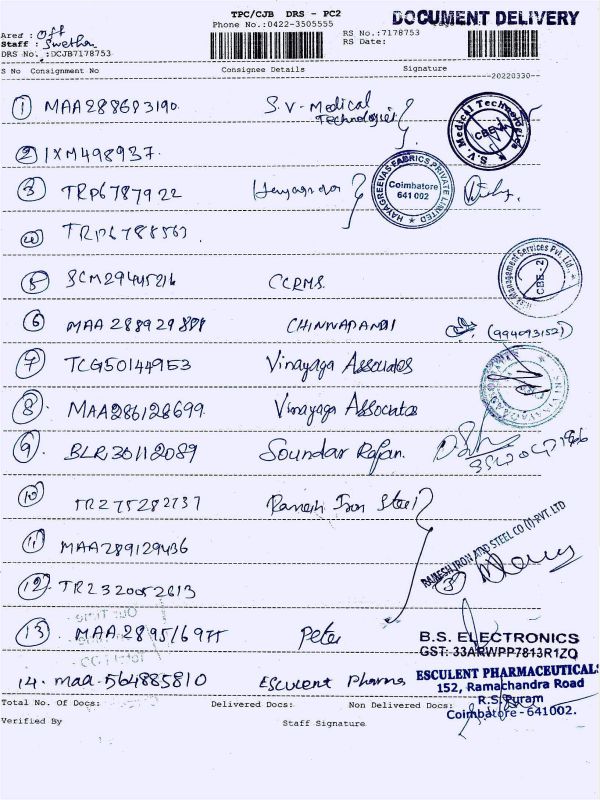 TPC/CJB DRS - PC2
DOCUMENT DELIVERY
Phone No.:0422-3505555
Area : Off
Staff : Swetha
DRS No. :DCJB7178753
RS No.:7178753
RS Date:
S No Consignment No Consignee Details Signature
20220330
1 MAA288683190 S.V- Medical Technologies
S.V. Medical Technologies CBE-2
2 IXM498937.
3 TRP6787922
HAYAGREEVAS FABRICS PRIVATE LIMITED
Coimbatore
641 002
4 TRP6788563
5 SCM29445216 CCRMS.
Risk Management Services Pvt. Ltd., CBE-2
6 MAA 288929888 CHINNAPANDI
7 TCG50144953 Vinayaga Associates
8 MAA286128699 Vinayaga Associates
9 BLR30112089 Soundar Rajan.
10 TR275282737 Ramesh Iron Steel
RAMESH IRON AND STEEL CO (I) PVT. LTD
11 MAA289129436
12 TR2320052613
Our Time
13 MAA289516977 Peter
B.S. ELECTRONICS
GST: 33ARWPP7813R1ZQ
14. maa-564885810 Esculent Pharma
ESCULENT PHARMACEUTICALS
152, Ramachandra Road
R.S. Puram
Coimbatore - 641002.
Total No. Of Docs: Delivered Docs: Non Delivered Docs:
Verified By Staff Signature